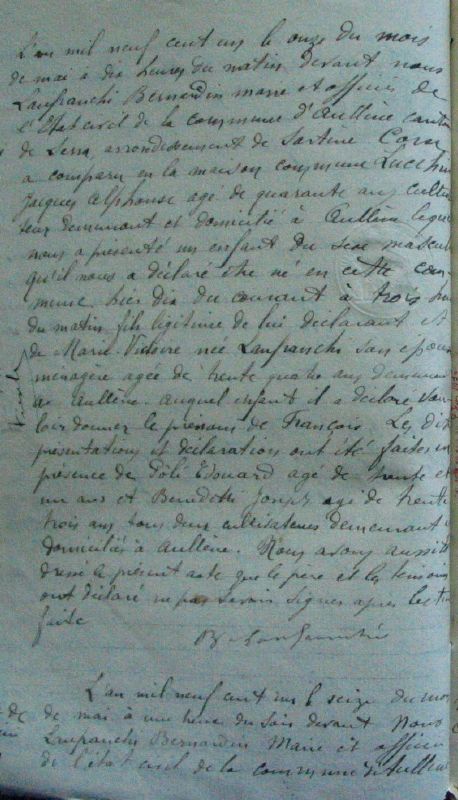 L'an mil neuf cent un le onze du mois
de mai à dix heures du matin devant nous
Lanfranchi Bernardin maire et officier de
l'Etat civil de la commune d'Aullène canton
de Serra, arrondissement de Sartène Corse
a comparu en la maison commune Lucchini
Jacques Alphonse agé de quarante ans cultiva
teur demeurant et domicilié à Aullène lequel
nous a présenté un enfant du sexe masculin
qu'il nous a déclaré être né en cette com-
mune hier dix du courant à trois heures
du matin fils légitime de lui déclarant et
de Marie Victoire née Lanfranchi son épouse
ménagère agée de trente quatre ans demeurant
à Aullène. auquel enfant il a déclaré vou
loir donner le prénom de François Les dites
présentations et déclarations ont été faites en
présence de Poli Edouard agé de trente et
un ans et Benedetti Joseph agé de trente
trois ans tous deux cultivateurs demeurant
domiciliés à Aullène. Nous avons aussitôt
dressé le présent acte que le père et les témoins
ont déclaré ne pas savoir signer après lecture
faite
Lanfranchi
L'an mil neuf cent un le seize du mois
de mai à une heure du soir devant Nous
Lanfranchi Bernardin Maire et officier
de l'état civil de la commune d'Aullène